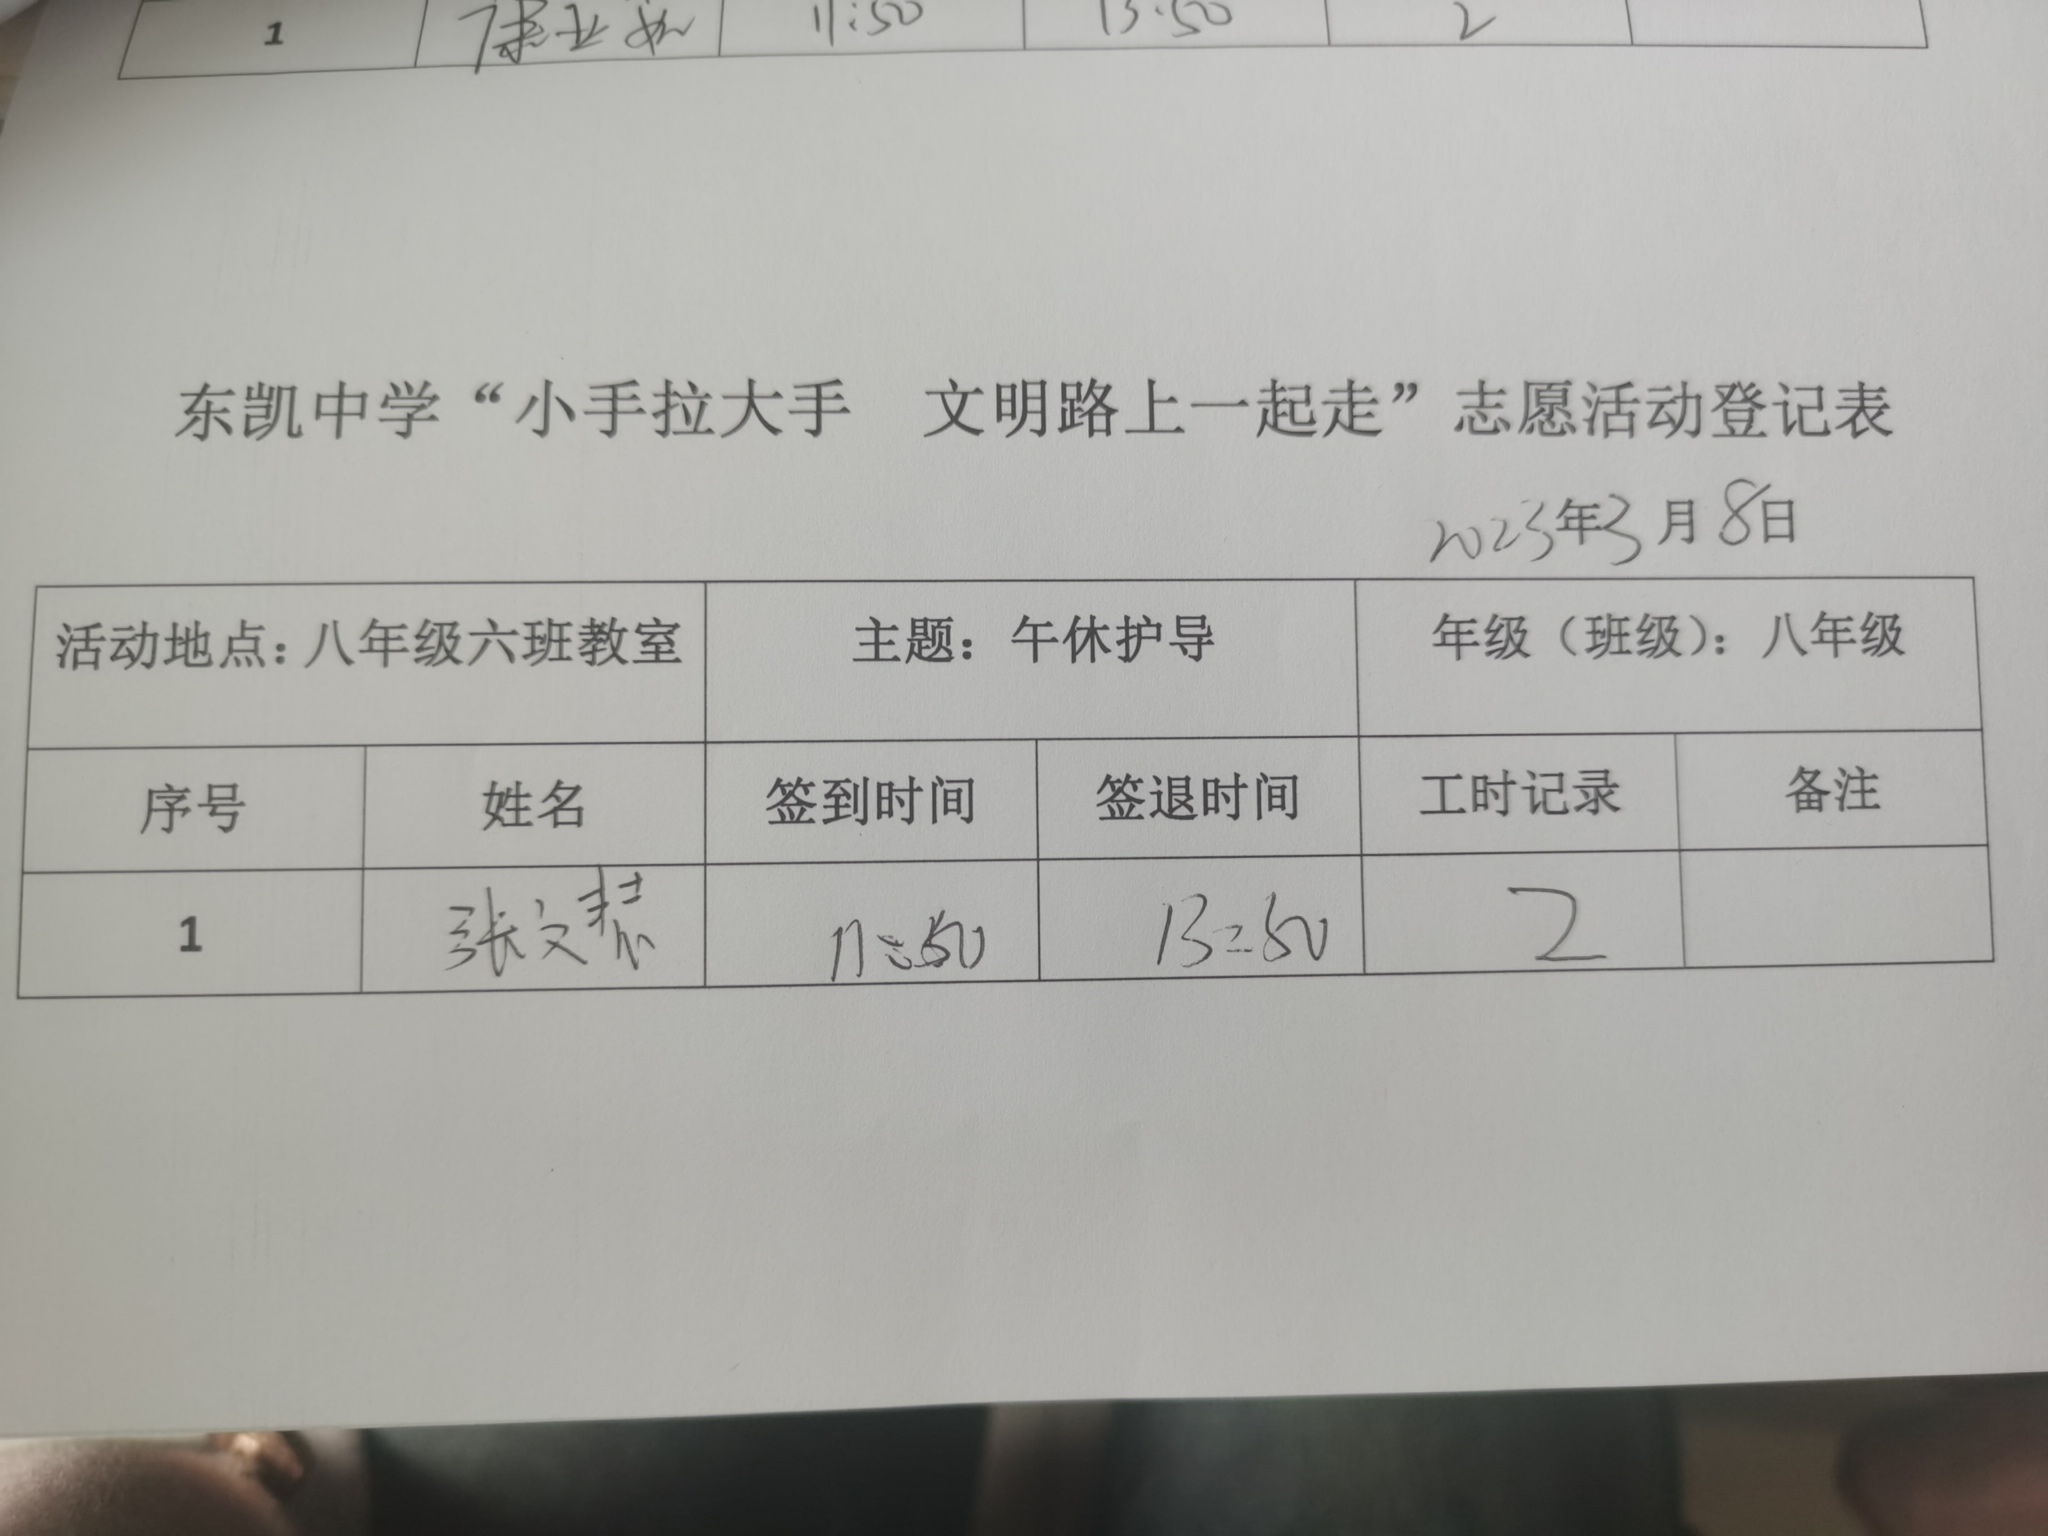 1 康亚茹 11:50 13:50 2
东凯中学“小手拉大手 文明路上一起走”志愿活动登记表
2023年3月8日
活动地点：八年级六班教室 主题：午休护导 年级（班级）：八年级
序号 姓名 签到时间 签退时间 工时记录 备注
1 张文慧 11:50 13:50 2